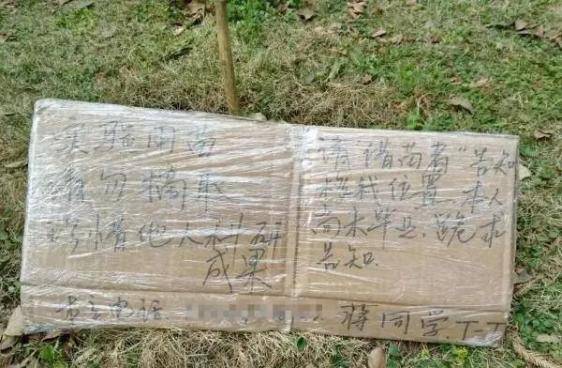 实验用苗
请勿摘取
珍惜他人科研
成果
请借苗者"告知
移栽位置,本人
尚未毕业,跪求
告知.
苗主电话 蒋同学 T-T